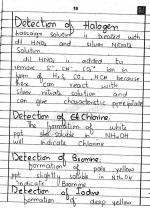 19
Detection of Halogen
halogen solution is treated with
dil HNO3 and silver Nitrate
solution.
dil HNO3 is added to
remove S²⁻, CN⁻ ion in
form of H2S, CO2, HCN because
these can react with
silver nitrate solution and
can give characteristic precipitate
Detection of Chlorine:
The formation of white
ppt soluble in NH4OH
will indicate Chlorine
Detection of Bromine:
Formation of pale yellow
ppt slightly soluble in NH4OH
indicate Bromine
Detection of Iodine
formation of deep yellow